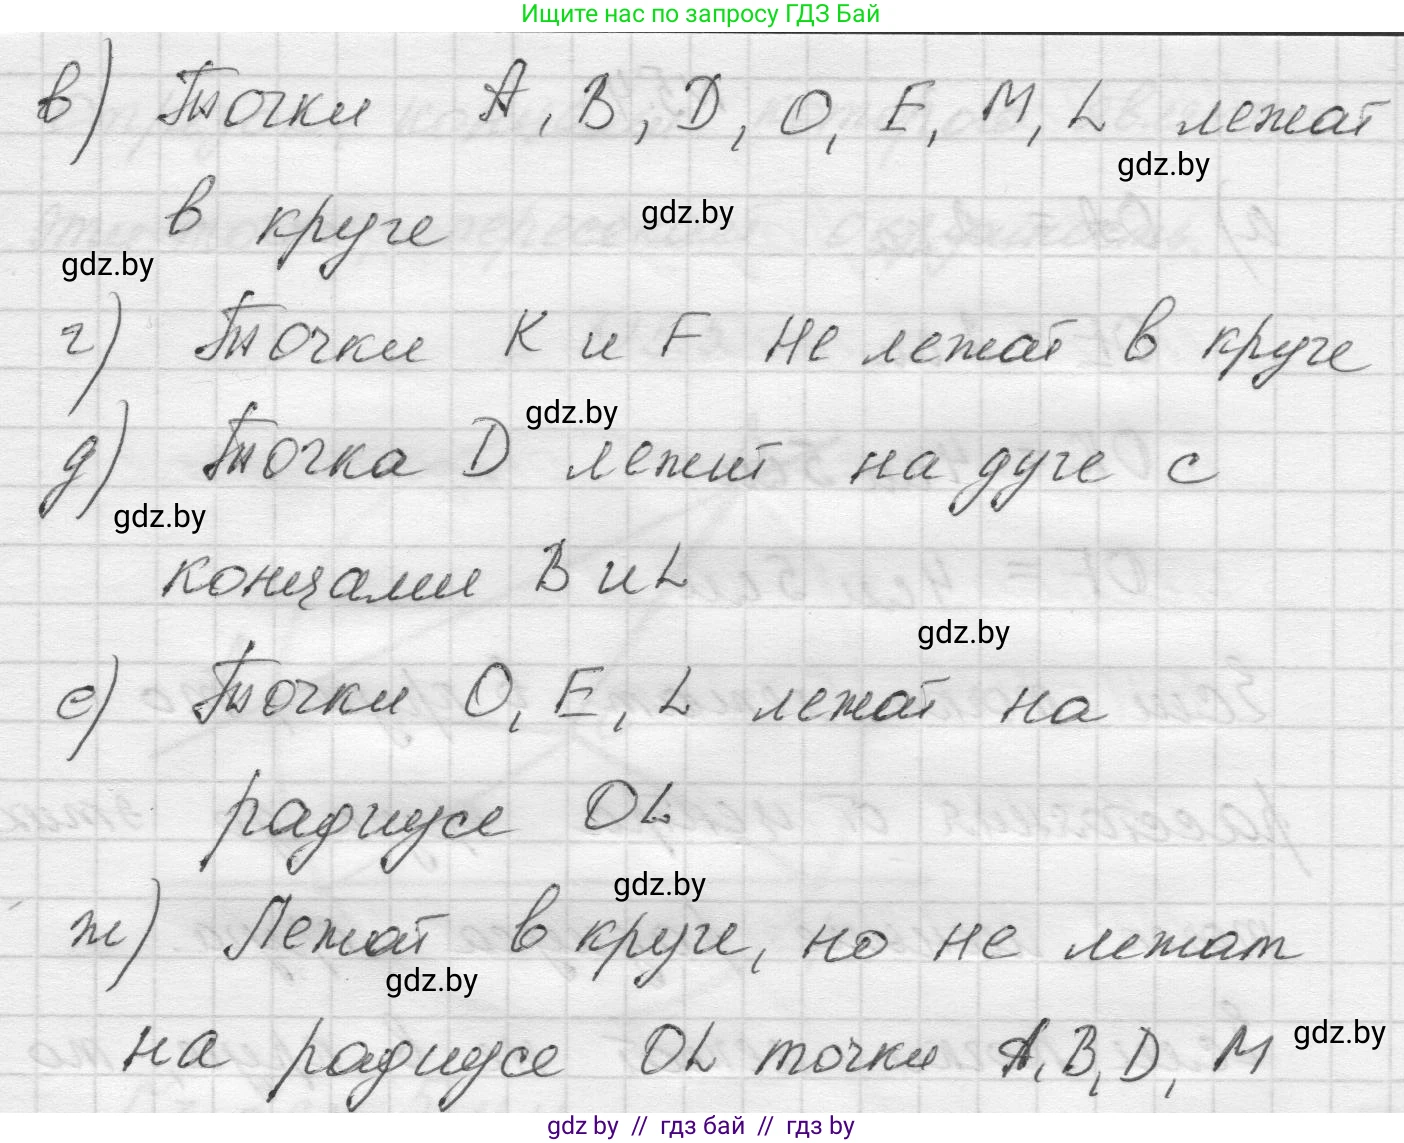 Ищите нас по запросу ГДЗ Бай
в) Точки А, В, D, О, Е, М, L лежат
gdz.by
в круге
gdz.by
gdz.by
г) Точки К и F не лежат в круге
gdz.by
д) Точка D лежит на дуге с
gdz.by
концами В и L
gdz.by
е) Точки О, Е, L лежат на
радиусе OL
gdz.by
ж) Лежат в круге, но не лежат
gdz.by
на радиусе OL точки А, В, D, М
gdz.by
gdz by // гдз бай // гдз by